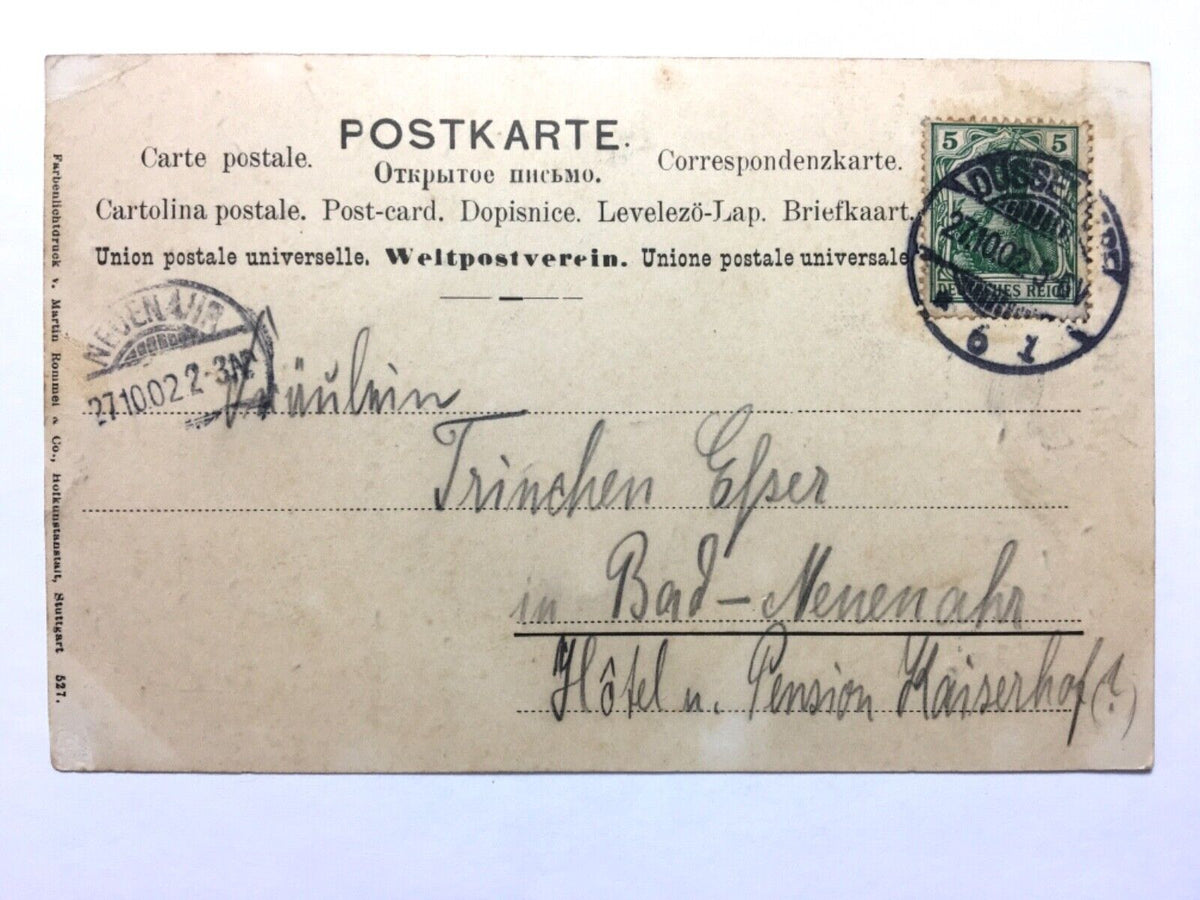 POSTKARTE.
Carte postale.
Открытое письмо.
Correspondenzkarte.
Cartolina postale. Post-card. Dopisnice. Levelezö-Lap. Briefkaart.
Union postale universelle. Weltpostverein. Unione postale universale
5 5
DEUTSCHES REICH
27.10.02
NEUENAHR
27.10.02 2-3N.
Fräulein
Trinchen Esser
in Bad-Neuenahr
Hôtel u. Pension Kaiserhof (?)
Farbenlichtdruck v. Martin Rommel & Co., Hofkunstanstalt, Stuttgart 527.